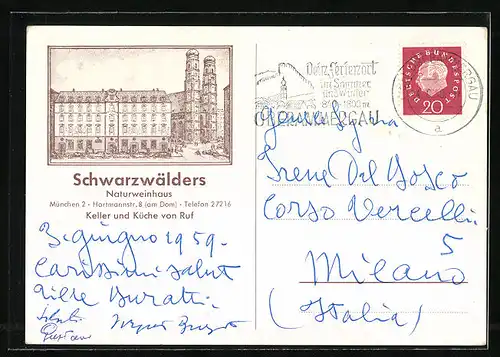 Schwarzwälders
Naturweinhaus
München 2 - Hartmannstr. 8 (am Dom) - Telefon 27216
Keller und Küche von Ruf
3. giugno 1959 -
Carissimi saluti
Dein Ferienort
im Sommer
und Winter
OBERAMMERGAU
a
DEUTSCHE BUNDESPOST
20
Irene Del Bosco
Corso Vercelli
5
Milano
(Italia)